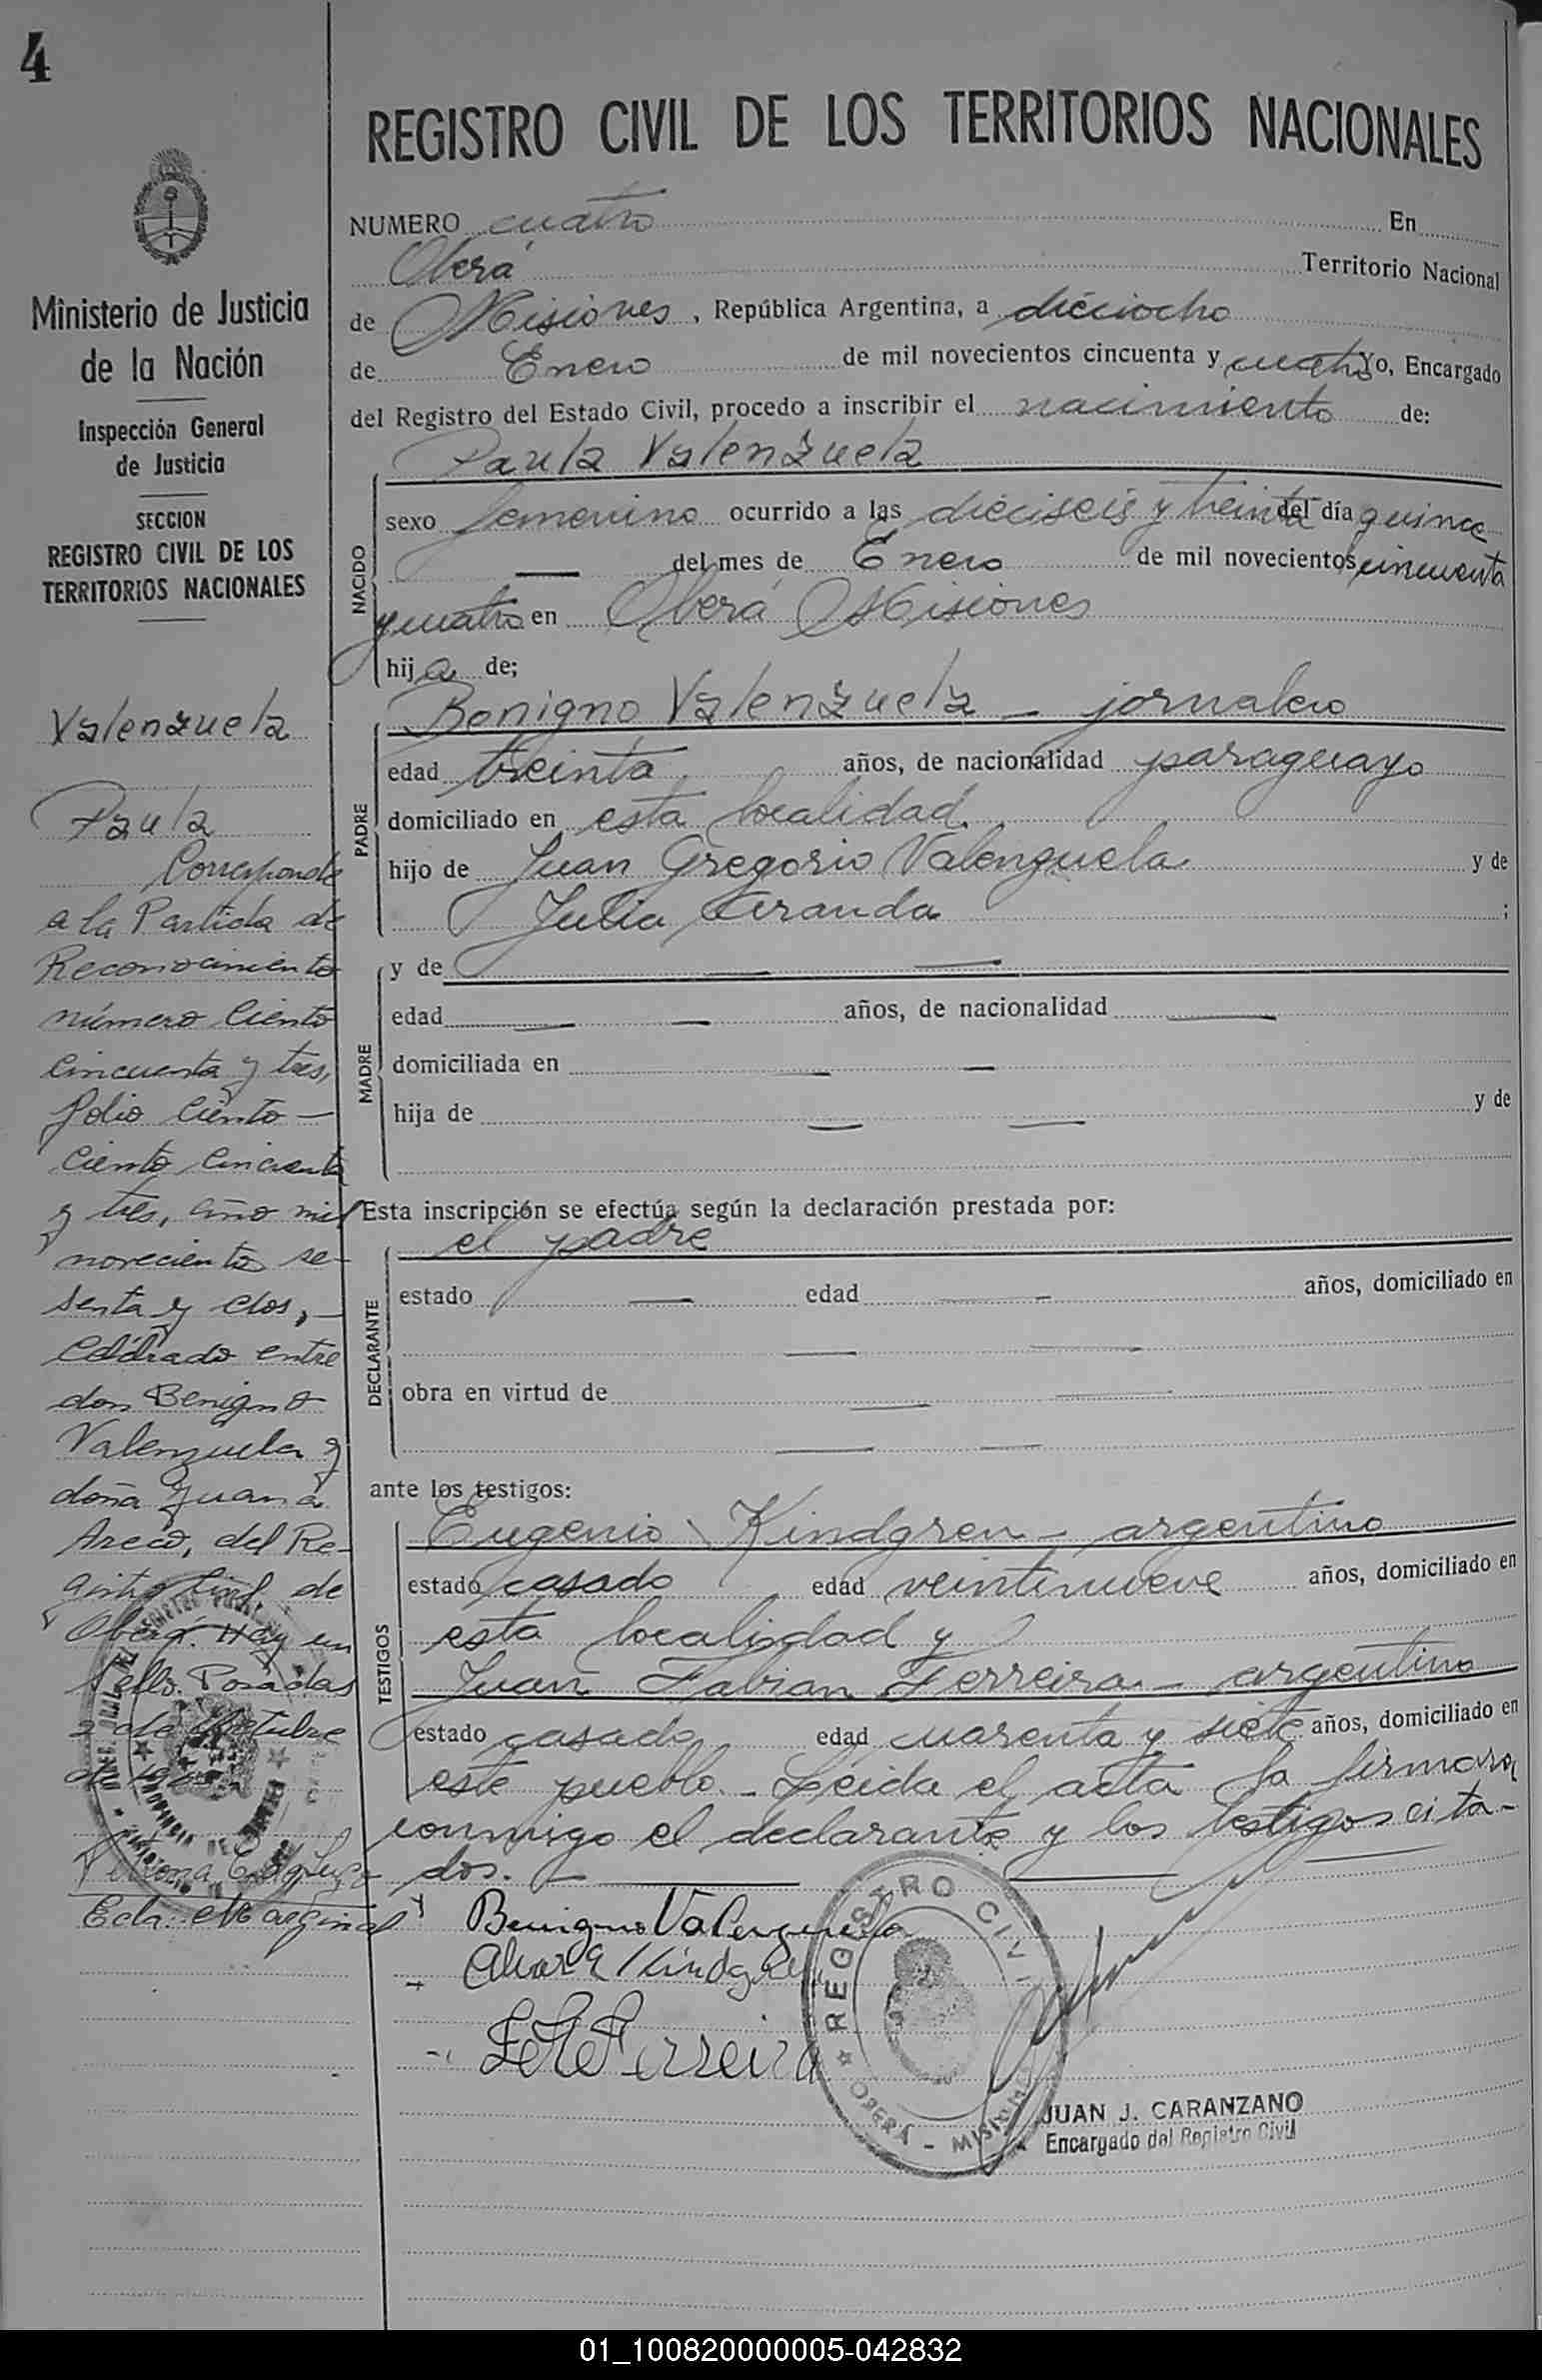 4
REGISTRO CIVIL DE LOS TERRITORIOS NACIONALES
Ministerio de Justicia
de la Nación
Inspección General
de Justicia
SECCION
REGISTRO CIVIL DE LOS
TERRITORIOS NACIONALES
Valenzuela
Paula
Corresponde
a la Partida de
Reconocimiento
número Ciento
Cincuenta y tres,
folio Ciento —
Ciento Cincuenta
y tres, año mil
novecientos se-
senta y dos, —
entre
don Benigno
Valenzuela y
doña Juana
Areco, del Re-
gistro Civil de
Oberá. Hay un
Sello. Posadas
2 de Octubre
de
Marginal
NUMERO cuatro En
Oberá Territorio Nacional
de Misiones, República Argentina, a dieciocho
de Enero de mil novecientos cincuenta y cuatro Yo, Encargado
del Registro del Estado Civil, procedo a inscribir el nacimiento de:
Paula Valenzuela
NACIDO
sexo femenino ocurrido a las dieciseis y treinta del día quince
— del mes de Enero de mil novecientos cincuenta
y cuatro en Oberá Misiones
hija de;
PADRE
Benigno Valenzuela — jornalero
edad treinta años, de nacionalidad paraguayo
domiciliado en esta localidad.
hijo de Juan Gregorio Valenzuela y de
Julia Aranda ;
MADRE
y de — —
edad — — años, de nacionalidad —
domiciliada en — —
hija de — — y de
Esta inscripción se efectúa según la declaración prestada por:
DECLARANTE
el padre
estado — edad — años, domiciliado en
— —
obra en virtud de — —
— —
ante los testigos:
TESTIGOS
Eugenio Kindgren — argentino
estado casado edad veintinueve años, domiciliado en
esta localidad y
Juan Fabian Ferreira — argentino
estado casado edad cuarenta y siete años, domiciliado en
este pueblo. — Leida el acta la firmaran
conmigo el declarante y los testigos cita-
dos. —
Benigno Valenzuela
Kindgren
Ferreira
REGISTRO CIVIL
OBERÁ - MISIONES
JUAN J. CARANZANO
Encargado del Registro Civil
01_100820000005-042832